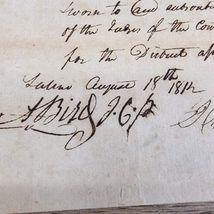 Sworn to and subscribed
of the Judges of the Cou
for the District a
August 18th 1812
A Bird J.C.P.